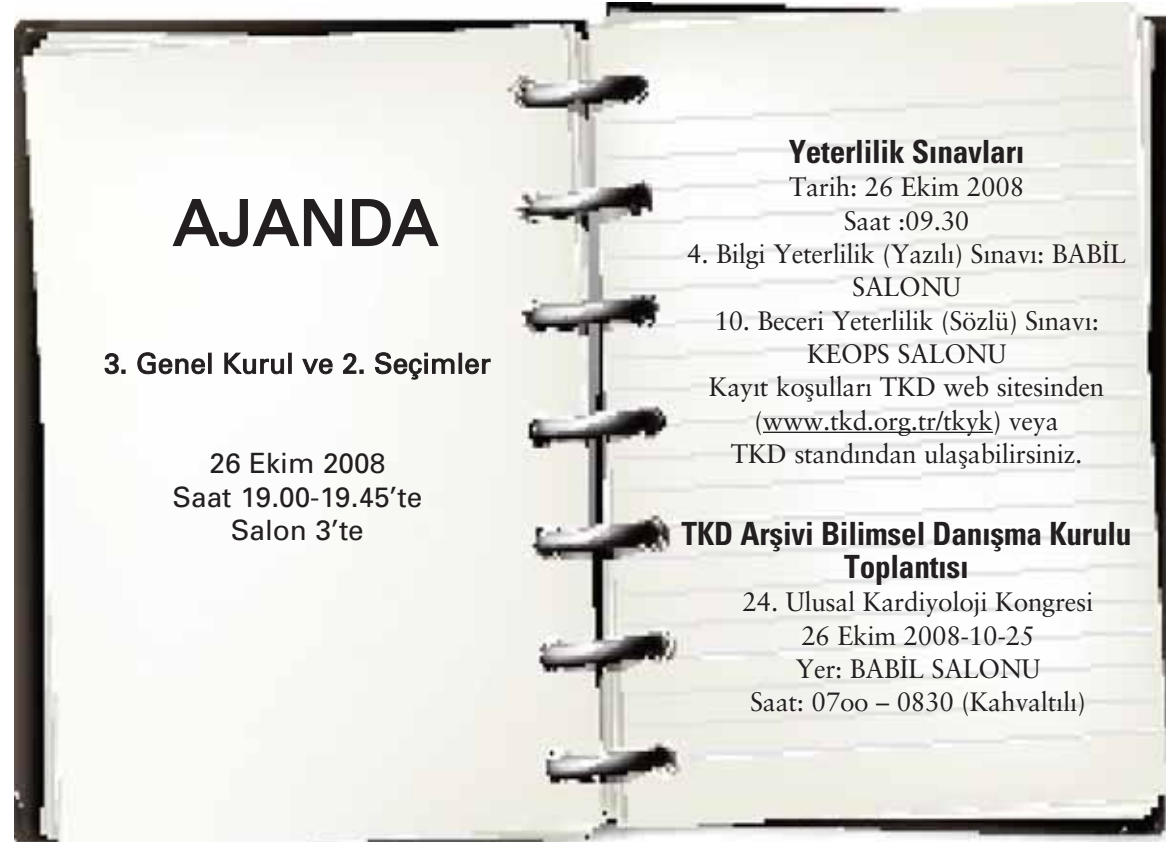 AJANDA
3. Genel Kurul ve 2. Seçimler
26 Ekim 2008
Saat 19.00-19.45’te
Salon 3’te
Yeterlilik Sınavları
Tarih: 26 Ekim 2008
Saat :09.30
4. Bilgi Yeterlilik (Yazılı) Sınavı: BABİL
SALONU
10. Beceri Yeterlilik (Sözlü) Sınavı:
KEOPS SALONU
Kayıt koşulları TKD web sitesinden
(www.tkd.org.tr/tkyk) veya
TKD standından ulaşabilirsiniz.
TKD Arşivi Bilimsel Danışma Kurulu
Toplantısı
24. Ulusal Kardiyoloji Kongresi
26 Ekim 2008-10-25
Yer: BABİL SALONU
Saat: 07oo – 0830 (Kahvaltılı)